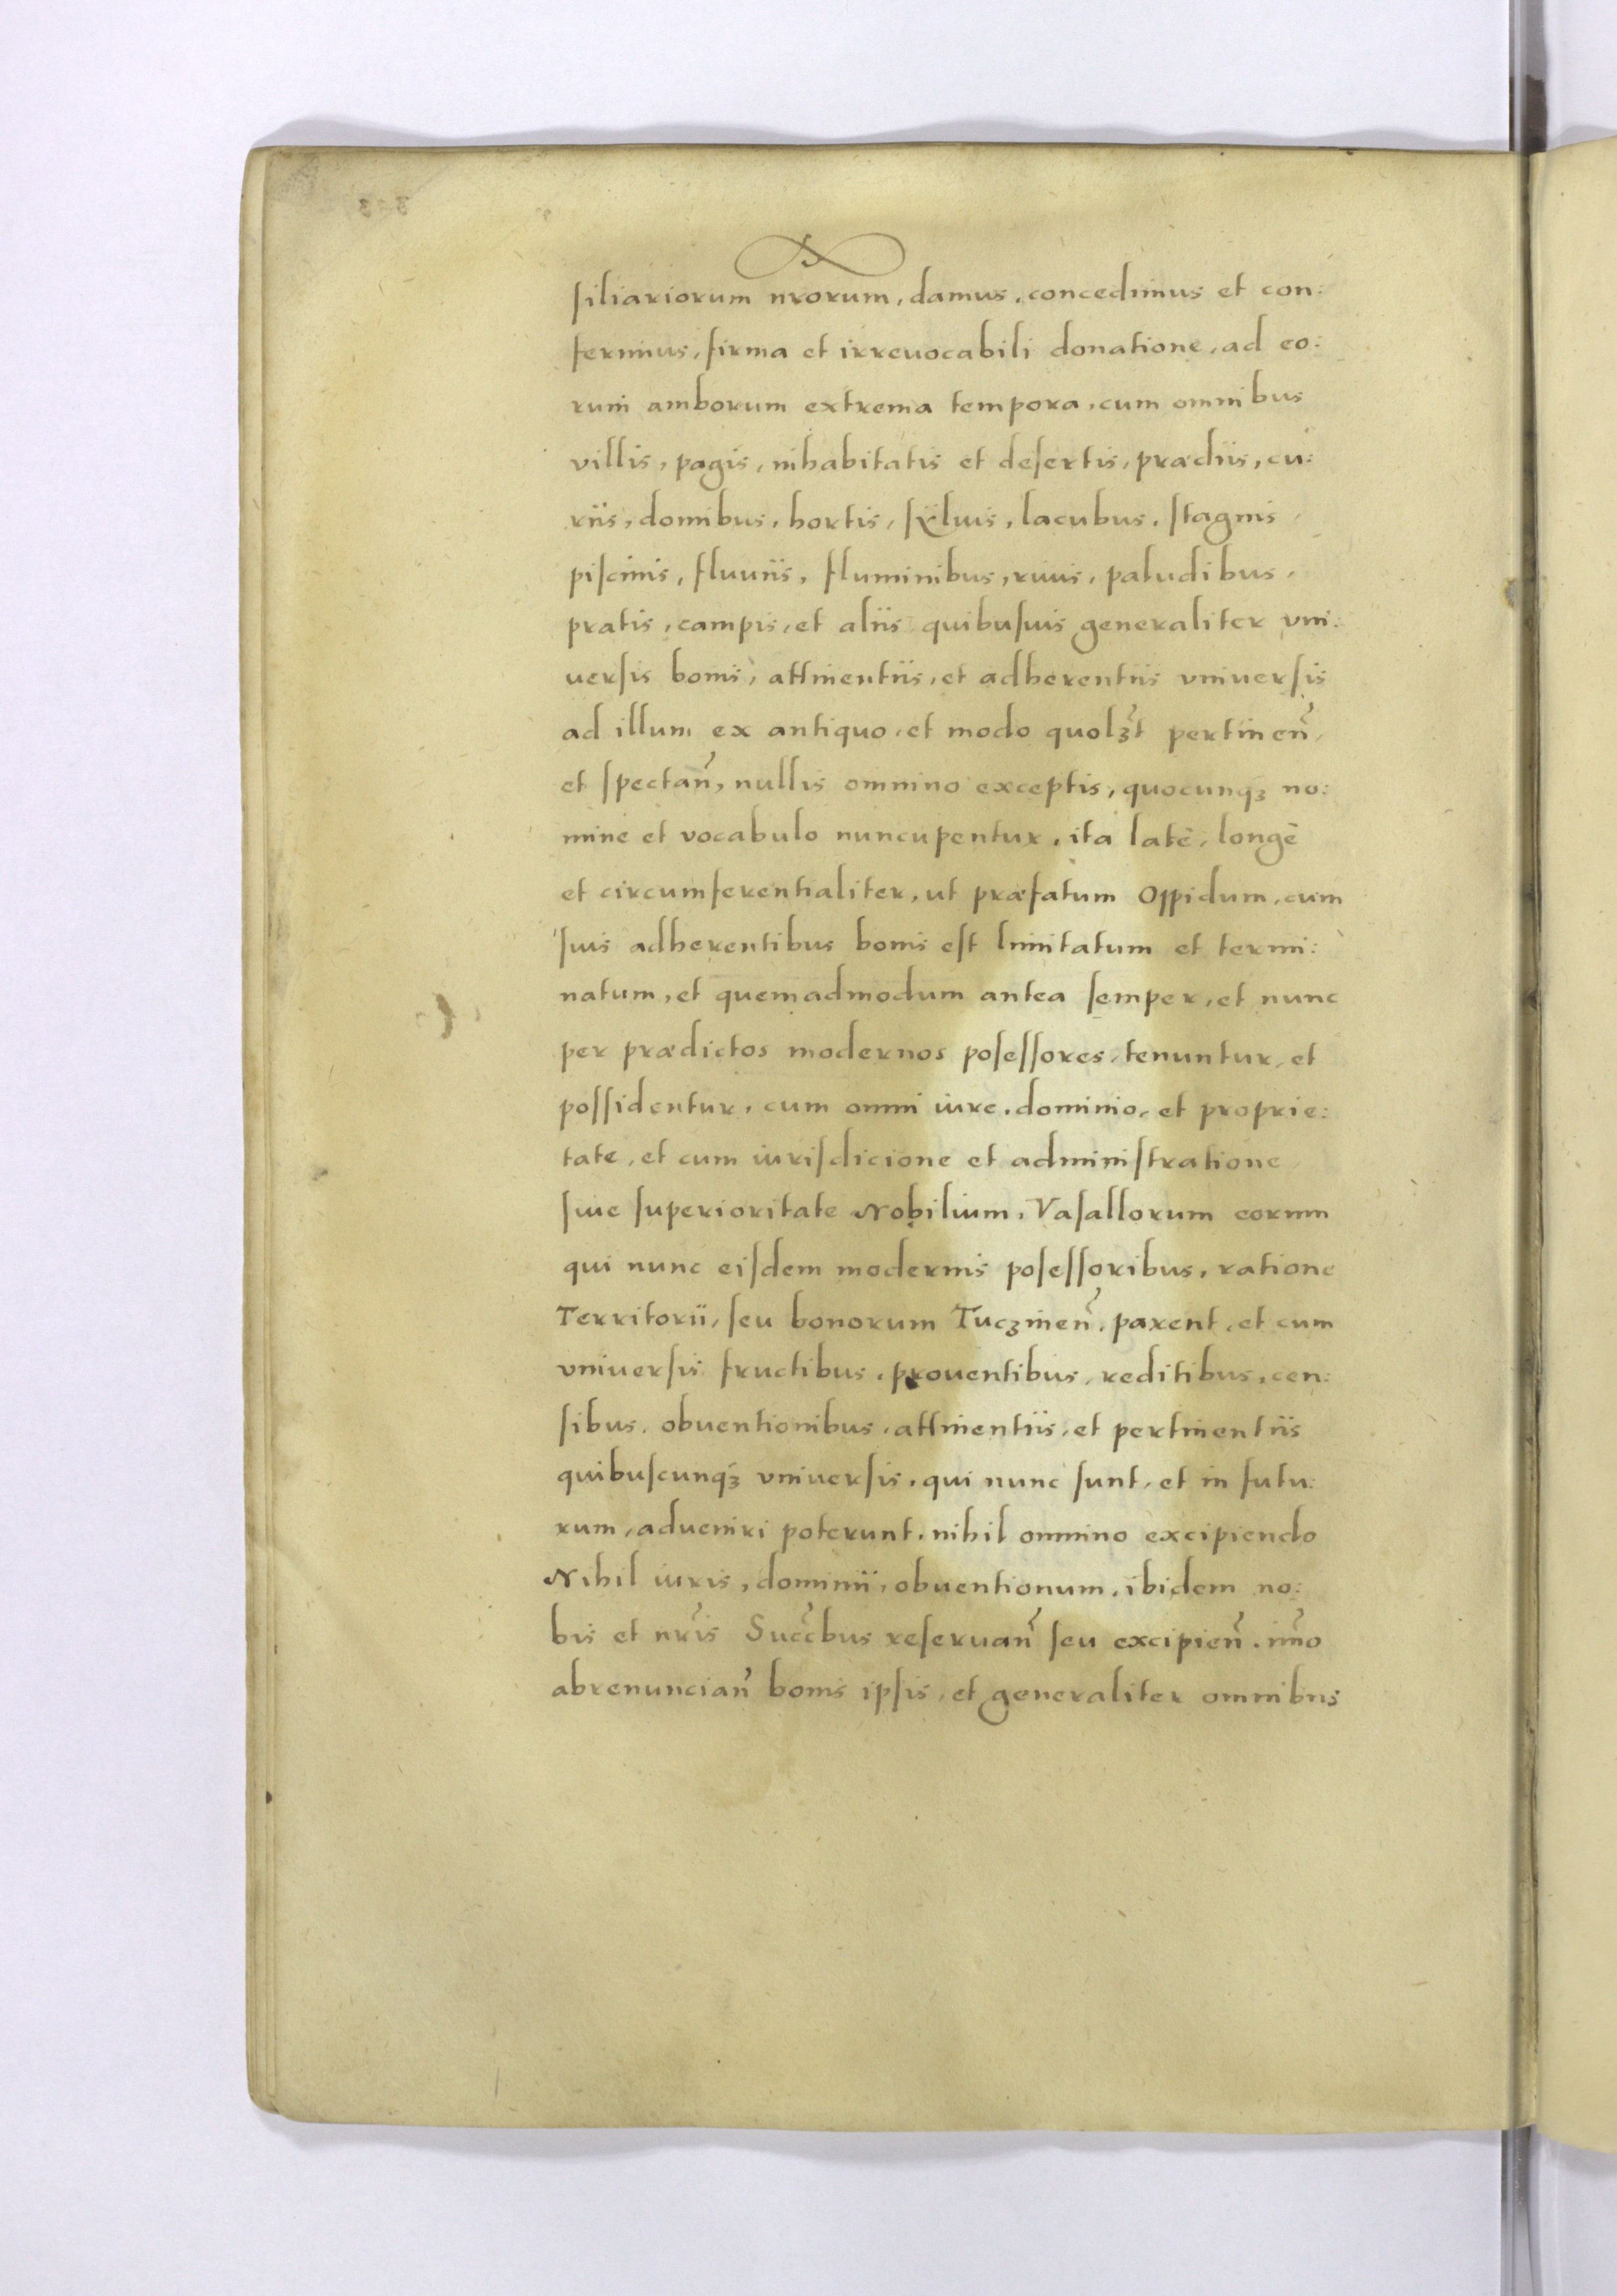 ſiliariorum nr̃orum, damus, concedimus et con:
ferimus, firma et irreuocabili donatione, ad eo:
rum amborum extrema tempora, cum omnibus
villis, pagis, inhabitatis et deſertis, prædiis, cu:
riis, domibus, hortis, ſÿluis, lacubus, ſtagnis,
piſcinis, fluuiis, fluminibus, riuis, paludibus,
pratis, campis, et aliis quibuſuis generaliter vni:
uerſis bonis, attinentiis, et adherentiis vniuerſis
ad illum ex antiquo, et modo quolꝫt pertinen̄,
et ſpectan̄, nullis omnino exceptis, quocunqꝫ no:
mine et vocabulo nuncupentur, ita latè, longè
et circumferentialiter, ut præfatum Oppidum, cum
ſuis adherentibus bonis eſt limitatum et termi:
natum, et quemadmodum antea ſemper, et nunc
per prædictos modernos poſeſſores, tenuntur, et
poſſidentur, cum omni iure, dominio, et proprie:
tate, et cum iuriſdicione et adminiſtratione,
ſiue ſuperioritate Nobilium, Vaſallorum eorum
qui nunc eiſdem modernis poſeſſoribus, ratione
Territorii, ſeu bonorum Tucꝫnen̄, parent, et cum
vniuerſis fructibus, prouentibus, reditibus, cen:
ſibus, obuentionibus, attinentiis, et pertinentiis
quibuſcunqꝫ vniuerſis, qui nunc ſunt, et in futu:
rum, adueniri poterunt, nihil omnino excipiendo
Nihil iuris, dominii, obuentionum, ibidem no:
bis et nr̃is Succ̃bus reſeruan̄ ſeu excipien̄, im̃o
abrenuncian̄ bonis ipſis, et generaliter omnibus